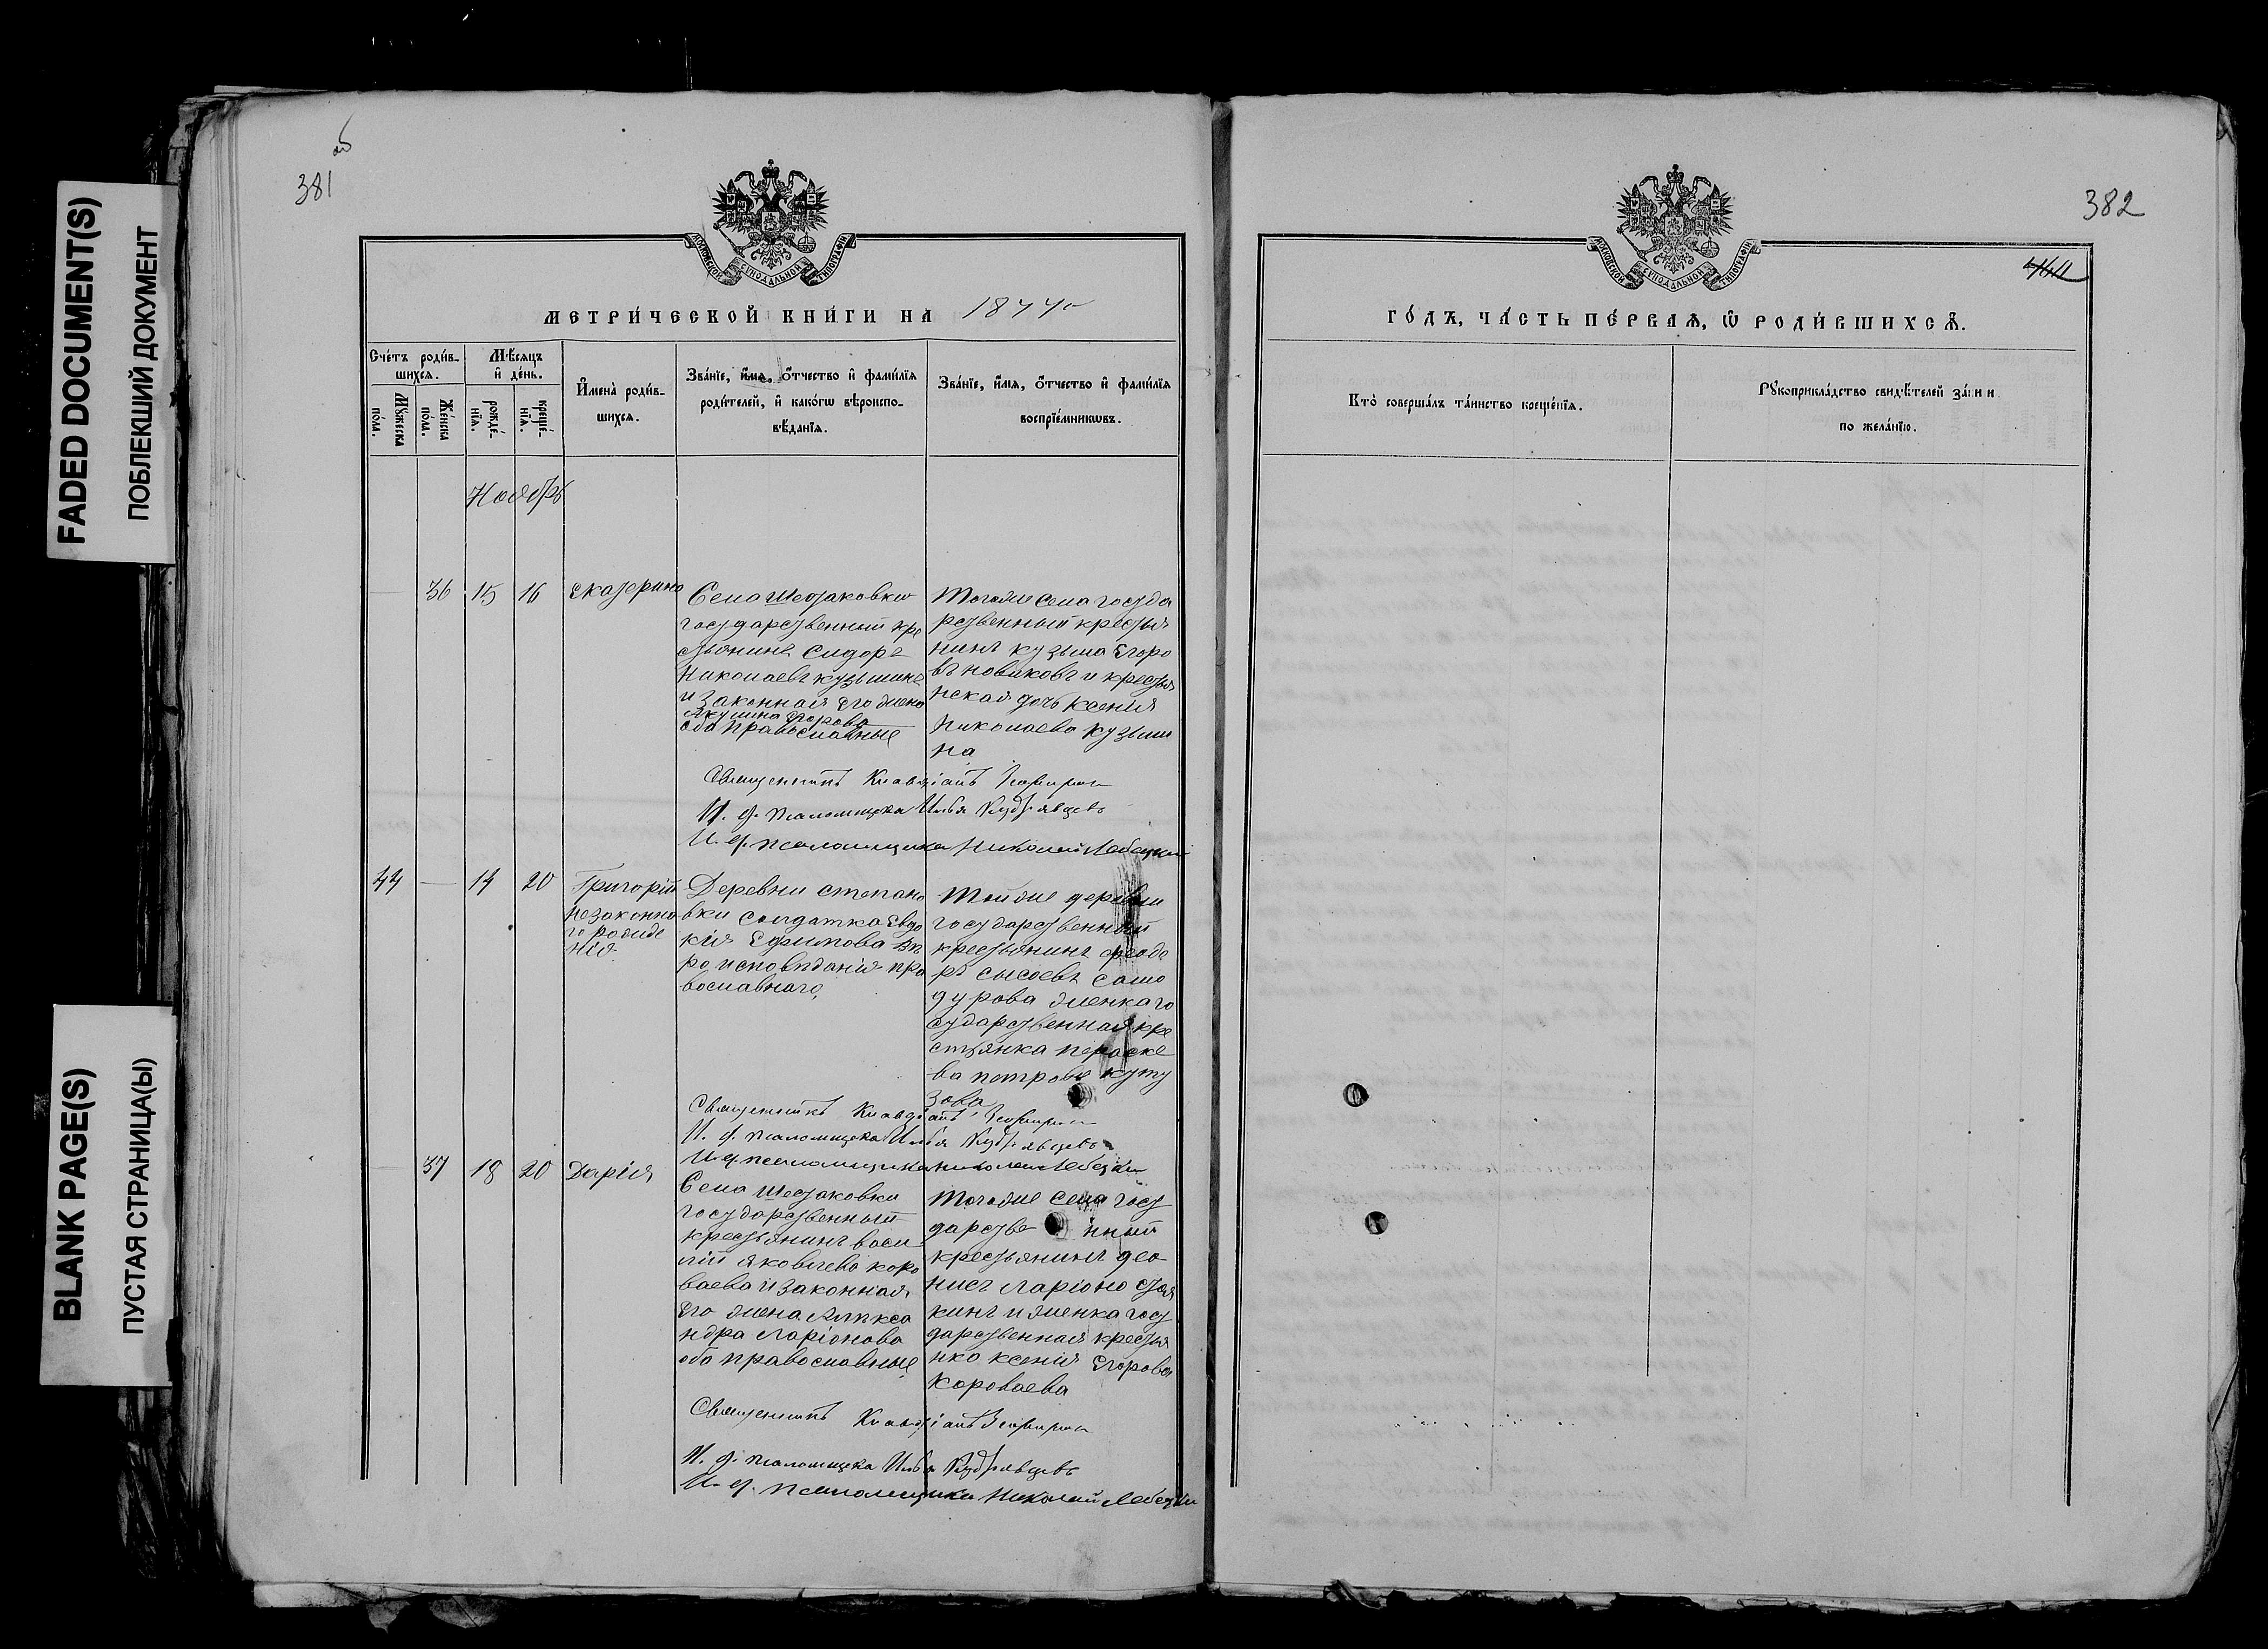 FADED DOCUMENT(S)
ПОБЛЕКШИЙ ДОКУМЕНТ
BLANK PAGE(S)
ПУСТАЯ СТРАНИЦА(Ы)
381
об
МОСКОВСКОЙ СУНОДАЛЬНОЙ ТИПОГРАФІИ
МЕТРИ́ЧЕСКОЙ КНИ́ГИ НА 1877
Сче́тъ роди́в-
шихсѧ.
Мꙋ́жеска
по́ла.
Же́нска
по́ла.
Мѣ́сяцъ
и҆ де́нь.
рожде́-
нїѧ.
креще́-
нїѧ.
И҆мена̀ роди́в-
шихсѧ.
Зва́нїе, и҆́мѧ, ѻ҆́тчество и҆ фами́лїѧ
роди́телей, и҆ како́гѡ вѣроиспо-
вѣ́данїѧ.
Зва́нїе, и҆́мѧ, ѻ҆́тчество и҆ фами́лїѧ
воспрїе́мникѡвъ.
Ноябрь
36 15 16 Екатерина
Села Шестаковки
государственный кре
стьянинъ Сидоръ
Николаевъ кузьминъ
и законная его жена
Акулина Егорова
оба православные
Тогоже села госуда
рственный крестья
нинъ кузьма Егоро
въ новиковъ и крестья
нская дочь ксения
Николаева кузьми
на
Священникъ Клавдіанъ
И. д. псаломщика Илья Кудрявцевъ
И. д. псаломщика Николай Лебедкин
44 — 14 20 Григорій
незаконна
го рожде
нія
Деревни степано
вки солдатка Евдо
кія Ефимова вѣ
ро исповѣданія пра
вославнаго
Тойже деревни
государственный
крестьянинъ феодо
ръ сысоевъ само
дурова женка го
сударственная кре
стьянка параске
ва петрова куту
зова
Священникъ Клавдіанъ
И. д. псаломщика Илья Кудрявцевъ
И. д. псаломщика Николай Лебедкин
37 18 20 Дарія
Села Шестаковки
государственный
крестьянинъ васи
лій яковлева коро
ваева и законная
его жена Алѣкса
ндра Ларіонова
оба православные
Тогоже села госу
дарстве нный
крестьянинъ део
нисъ Ларіоно
кинъ и женка госу
дарственная крестья
нка ксенія Егорова
Короваева
Священникъ Клавдіанъ
И. д. псаломщика Илья Кудрявцевъ
И. д. псаломщика Николай Лебедкин
382
МОСКОВСКОЙ СУНОДАЛЬНОЙ ТИПОГРАФІИ
ГО́ДЪ, ЧА́СТЬ ПЕ́РВАѦ, Ѡ҆ РОДИ́ВШИХСѦ.
Кто̀ соверша́лъ та́инство креще́нїѧ.
Рꙋкоприкла́дство свидѣ́телей за́писи
по жела́нїю.